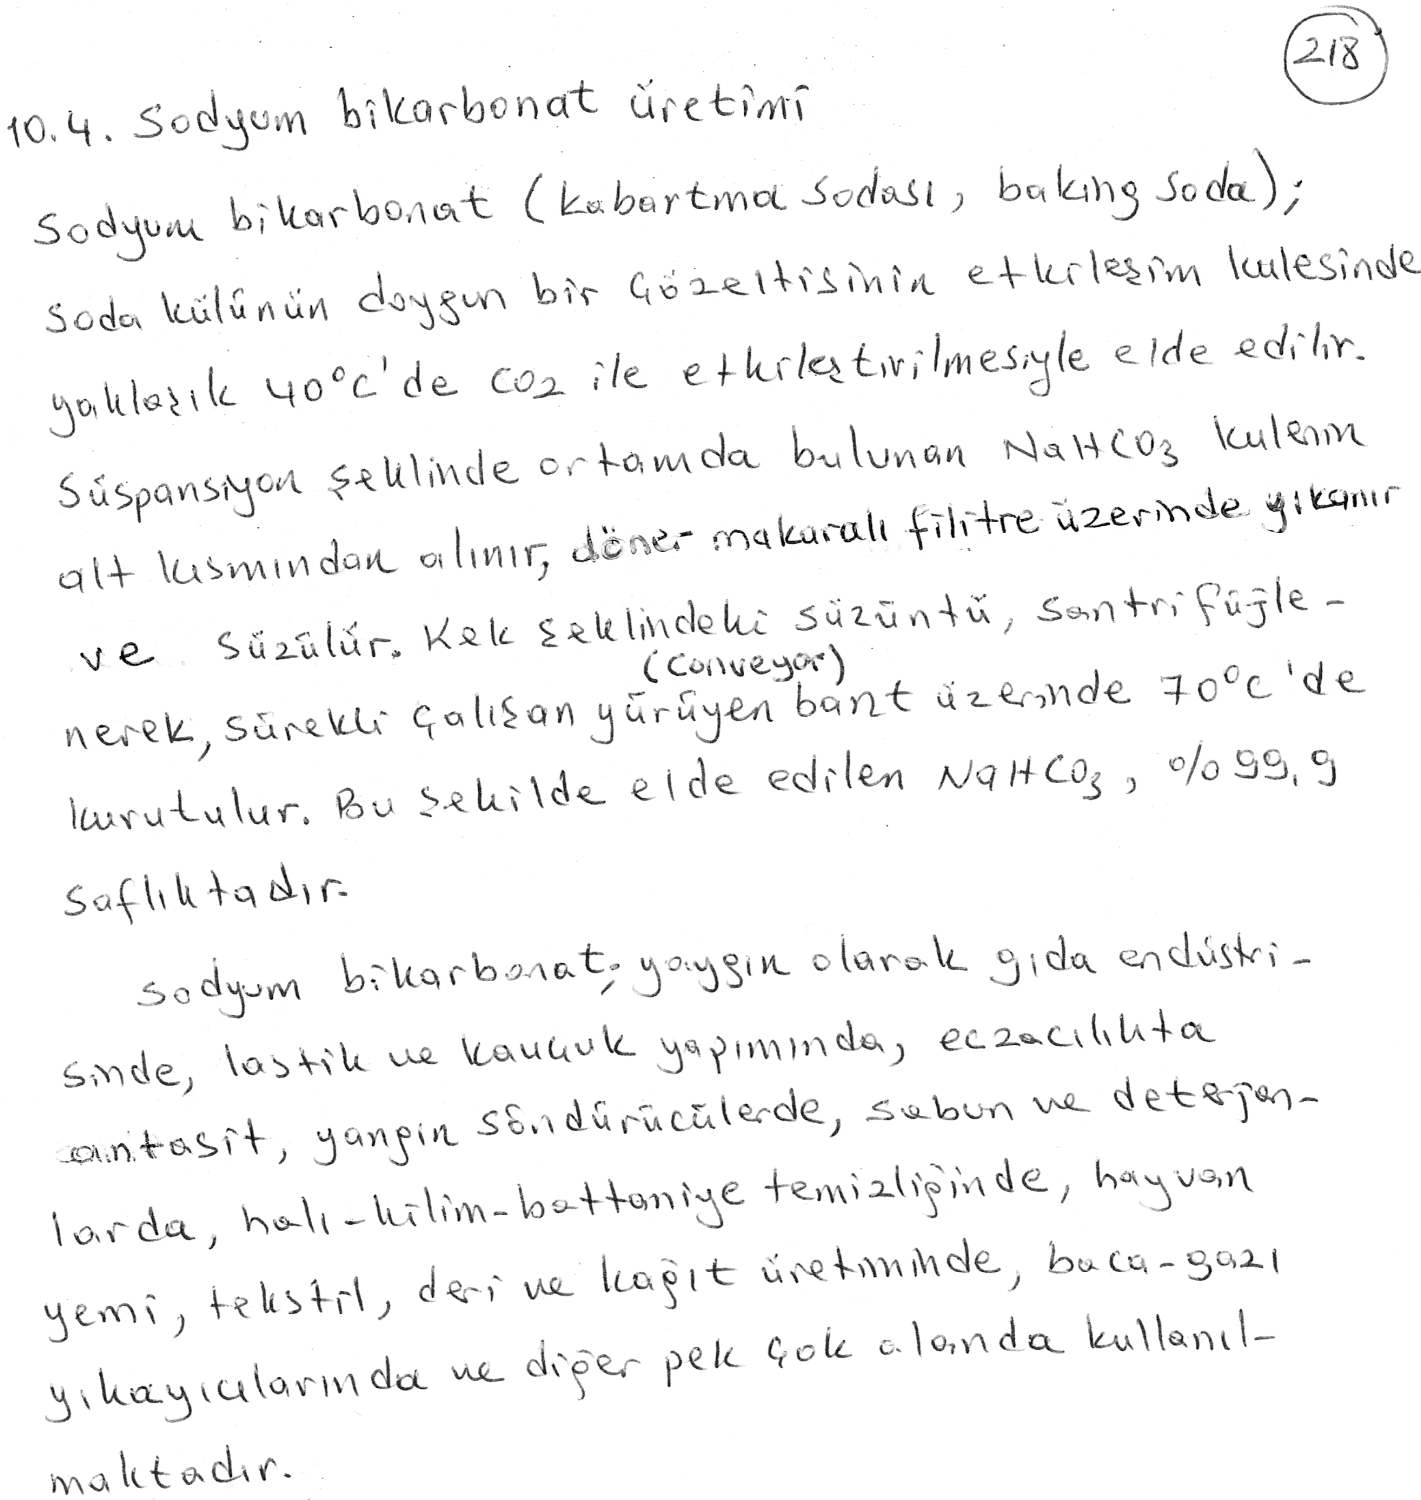 218
10.4. Sodyum bikarbonat üretimi
Sodyum bikarbonat (kabartma sodası, baking soda);
Soda külünün doygun bir çözeltisinin etkileşim kulesinde
yaklaşık 40°C'de CO2 ile etkileştirilmesiyle elde edilir.
Süspansiyon şeklinde ortamda bulunan NaHCO3 kulenin
alt kısmından alınır, döner makaralı filitre üzerinde yıkanır
ve süzülür. Kek şeklindeki süzüntü, santrifüjle-
(conveyor)
nerek, sürekli çalışan yürüyen bant üzerinde 70°C'de
kurutulur. Bu şekilde elde edilen NaHCO3, %99,9
saflıktadır.
Sodyum bikarbonat; yaygın olarak gıda endüstri-
sinde, lastik ve kauçuk yapımında, eczacılıkta
antasit, yangın söndürücülerde, sabun ve deterjan-
larda, halı-kilim-battaniye temizliğinde, hayvan
yemi, tekstil, deri ve kağıt üretiminde, baca-gazı
yıkayıcılarında ve diğer pek çok alanda kullanıl-
maktadır.